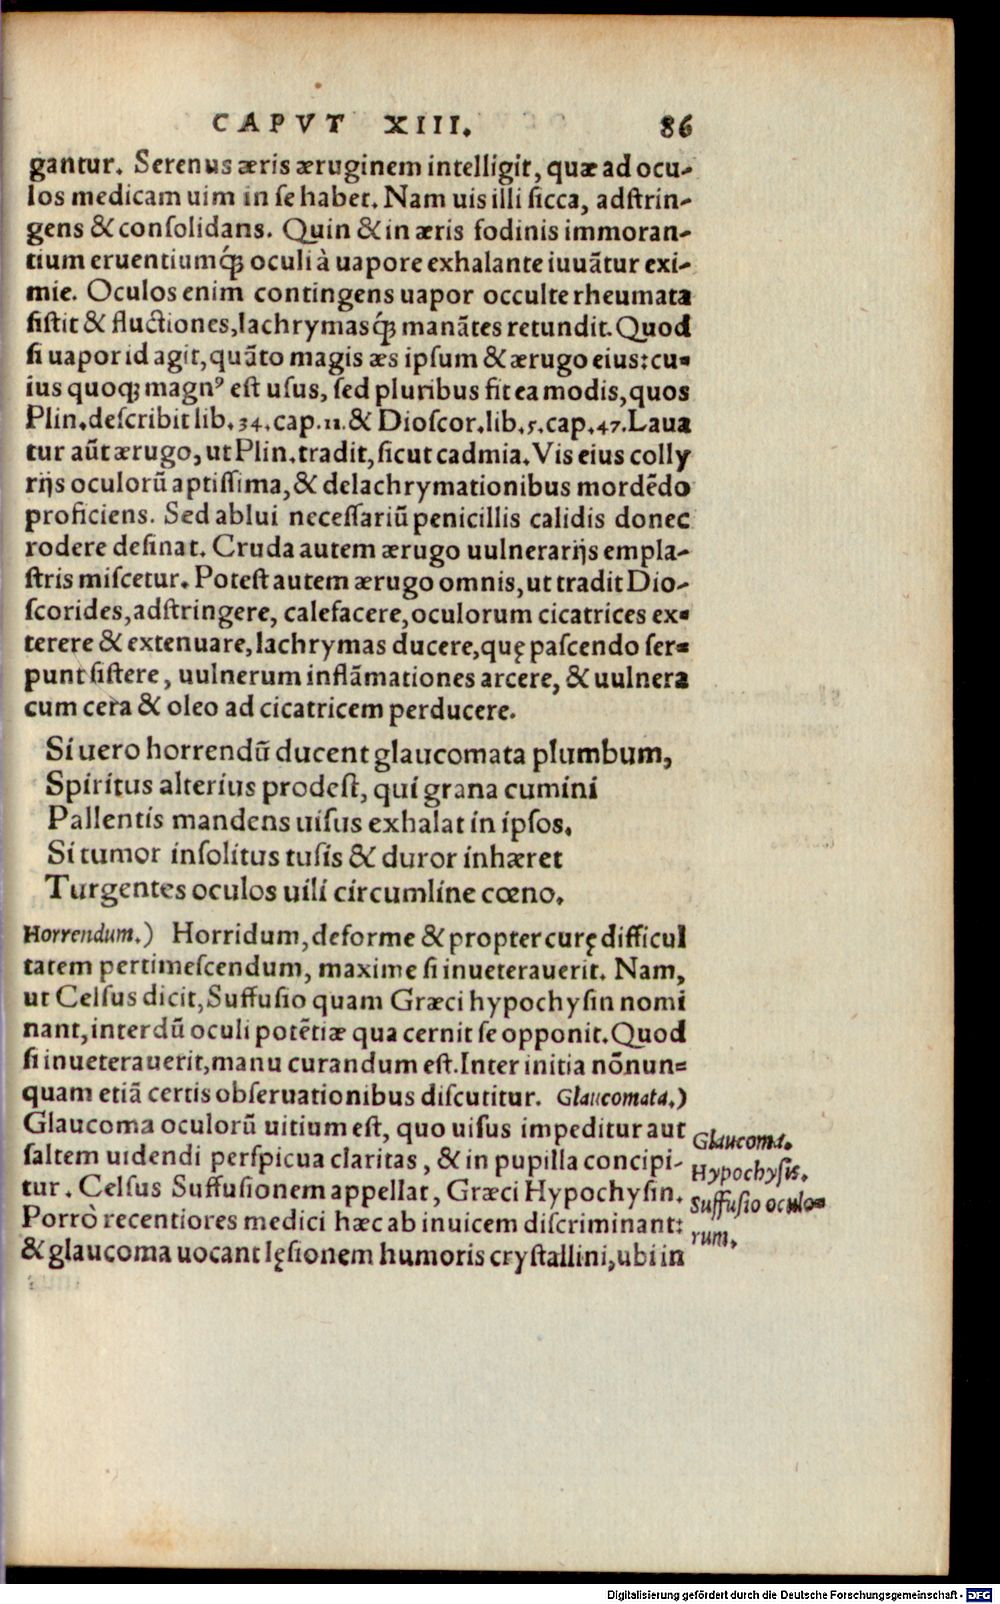 CAPVT XIII. 86
gantur. Serenus æris æruginem intelligit, quæ ad ocu-
los medicam uim in se habet. Nam uis illi sicca, adstrin-
gens & consolidans. Quin & in æris fodinis immoran-
tium eruentiumq́ꝫ oculi à uapore exhalante iuuãtur exi-
mie. Oculos enim contingens uapor occulte rheumata
sistit & fluctiones, lachrymasq́ꝫ manãtes retundit. Quod
si uapor id agit, quãto magis æs ipsum & ærugo eius: cu-
ius quoqꝫ magnꝰ est usus, sed pluribus fit ea modis, quos
Plin. describit lib. 34. cap. 11. & Dioscor. lib. 5. cap. 47. Laua
tur aũt ærugo, ut Plin. tradit, sicut cadmia. Vis eius colly
rijs oculorũ aptissima, & delachrymationibus mordẽdo
proficiens. Sed ablui necessariũ penicillis calidis donec
rodere desinat. Cruda autem ærugo uulnerarijs empla-
stris miscetur. Potest autem ærugo omnis, ut tradit Dio-
scorides, adstringere, calefacere, oculorum cicatrices ex-
terere & extenuare, lachrymas ducere, quę pascendo ser-
punt sistere, uulnerum inflãmationes arcere, & uulnera
cum cera & oleo ad cicatricem perducere.
Si uero horrendũ ducent glaucomata plumbum,
Spiritus alterius prodest, qui grana cumini
Pallentis mandens uisus exhalat in ipsos.
Si tumor insolitus tusis & duror inhæret
Turgentes oculos uili circumline cœno.
Horrendum.) Horridum, deforme & propter curę difficul
tatem pertimescendum, maxime si inueterauerit. Nam,
ut Celsus dicit, Suffusio quam Græci hypochysin nomi
nant, interdũ oculi potẽtiæ qua cernit se opponit. Quod
si inueterauerit, manu curandum est. Inter initia nõnun-
quam etiã certis obseruationibus discutitur. Glaucomata.)
Glaucoma oculorũ uitium est, quo uisus impeditur aut
saltem uidendi perspicua claritas, & in pupilla concipi-
tur. Celsus Suffusionem appellat, Græci Hypochysin.
Porrò recentiores medici hæc ab inuicem discriminant:
& glaucoma uocant lęsionem humoris crystallini, ubi in
Glaucoma.
Hypochysis.
Suffusio oculo-
rum.
Digitalisierung gefördert durch die Deutsche Forschungsgemeinschaft - DFG